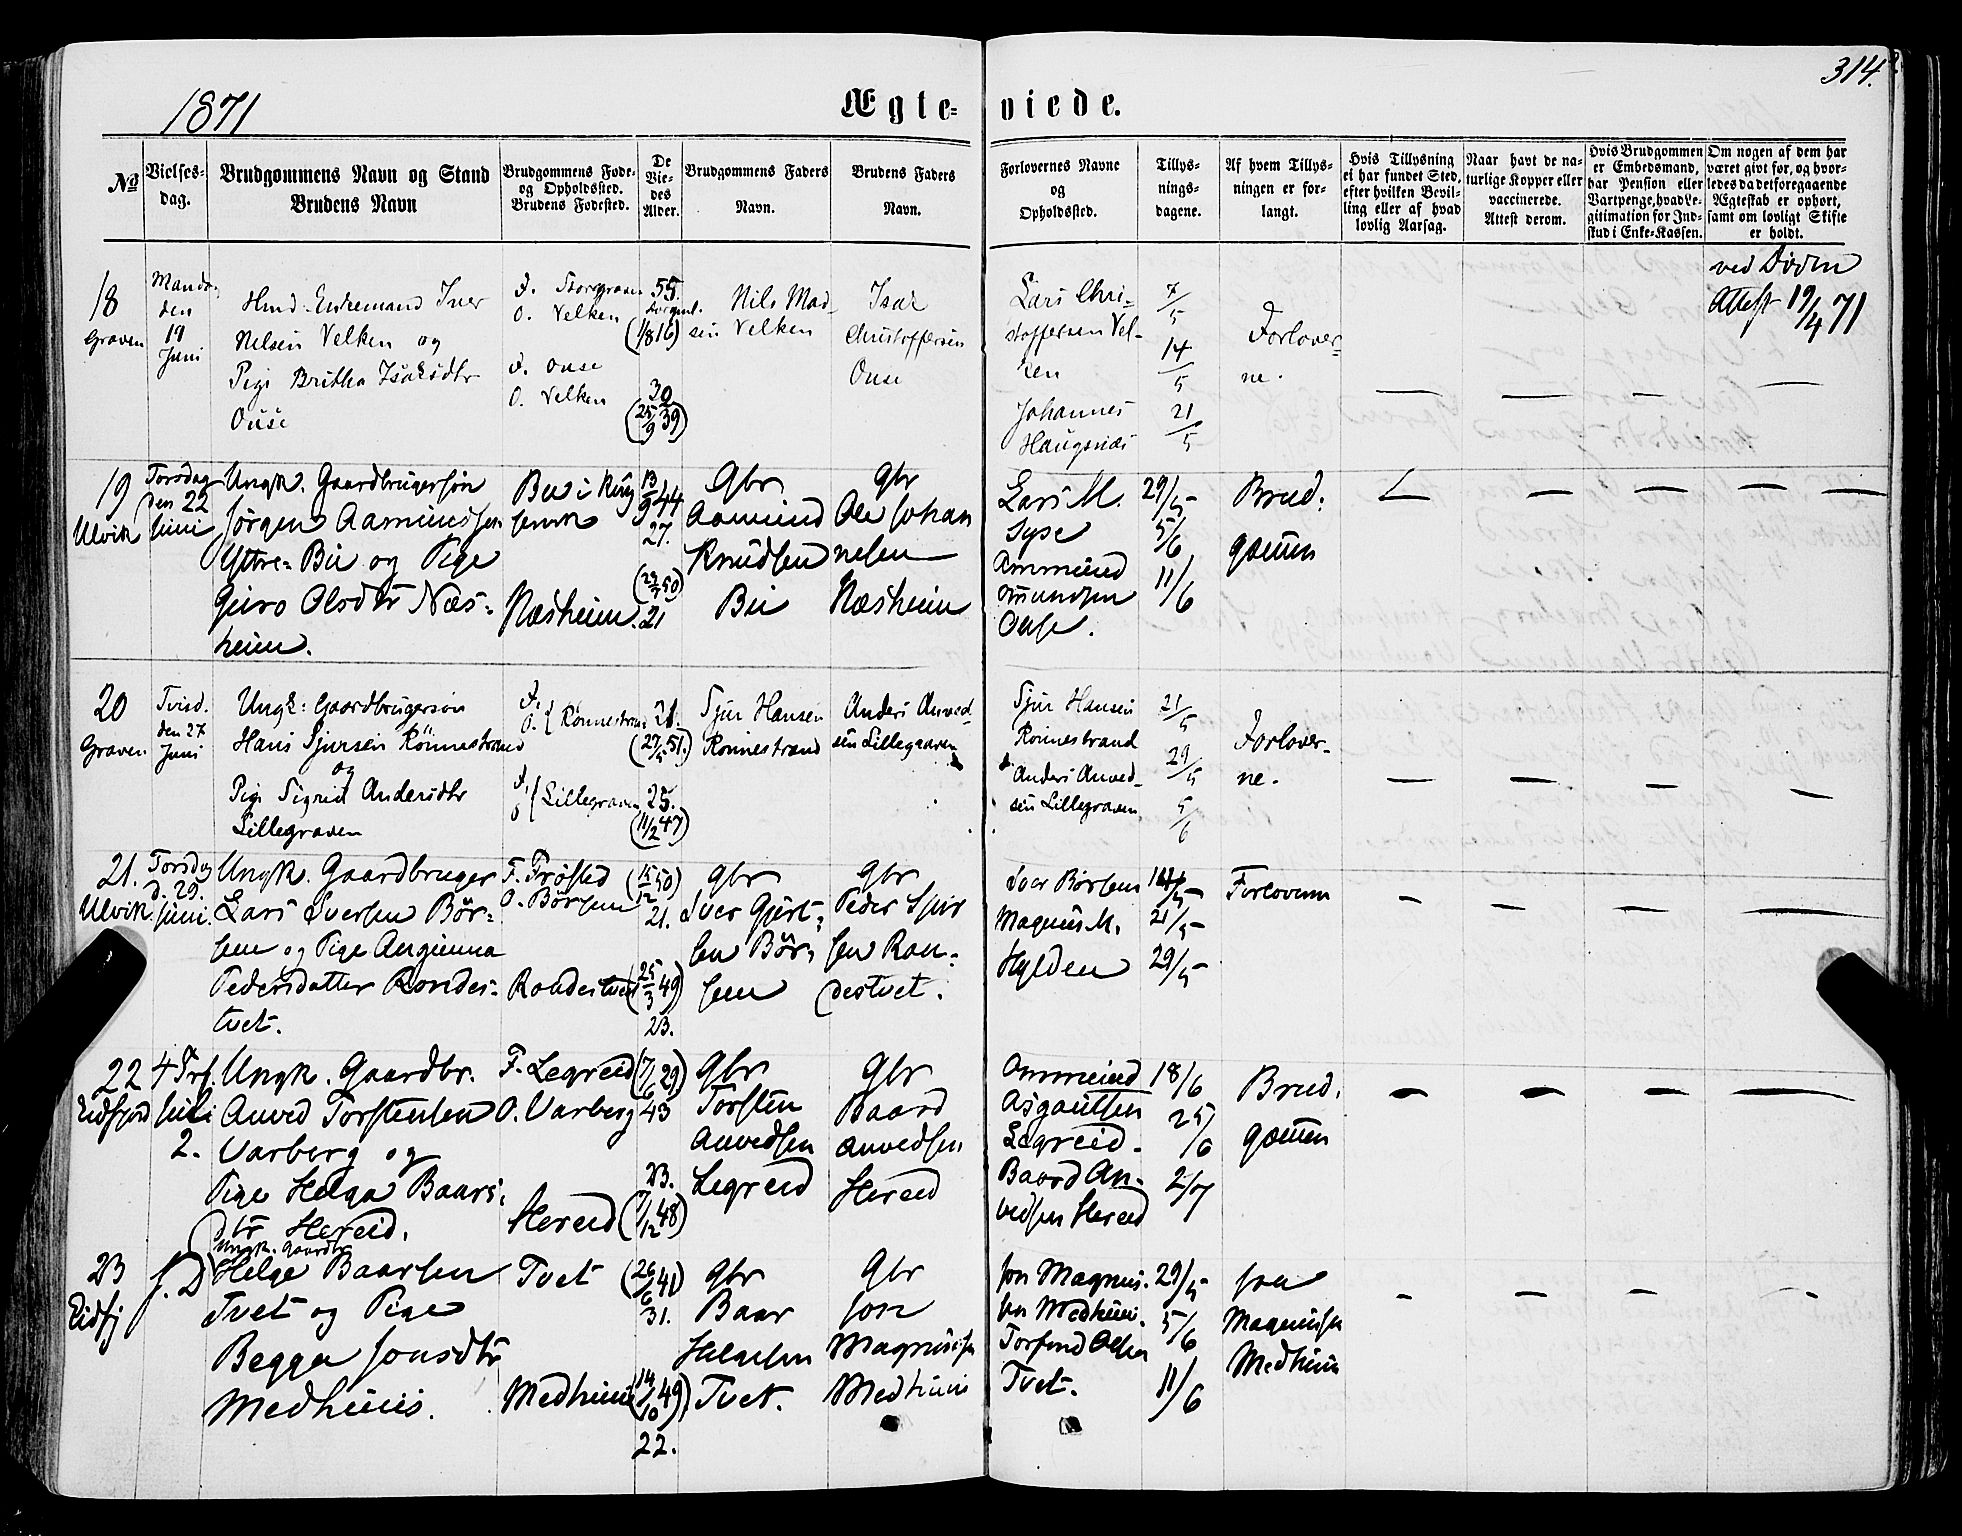 314.
1871
Ægte-viede.
No
Vielses-dag.
Brudgommens Navn og Stand
Brudens Navn
Brudgommens Føde-
og Opholdssted.
Brudens Fødested.
De
Vie-
des
Alder.
Brudgommens Faders
Navn.
Brudens Faders
Navn.
Forlovernes Navne
og
Opholdssted.
Tillys-
nings-
dagene.
Af hvem Tillys-
ningen er for-
langt.
Hvis Tillysning
ei har fundet Sted,
efter hvilken Bevil-
ling eller af hvad
lovlig Aarsag.
Naar havt de na-
turlige Kopper eller
vaccinerede.
Attest derom.
Hvis Brudgommen
er Embedsmand,
har Pension eller
Vartpenge, hvad Le-
gitimation for Ind-
skud i Enke-Kassen.
Om nogen af dem har
været givt før, og hvor-
ledes da det foregaaende
Ægteskab er ophørt,
samt om lovligt Skifte
er holdt.
18
Graven
Mandag
den
19
Juni
Enkemand Iver
Nelsen Velken og
Pige Britha Isaksdtr
Ouse
F. Storegraven
O. Velken
F. Ouse
O. Velken
55.
(1/8 16)
30
(25/9 39)
Nils Mad-
sen Velken
Isak
Christoffersen
Ouse
Lars Chri-
stoffersen Vel-
ken
Johannes
Haugsnæs
7/5
14/5
21/5
Forlover-
ne.
ved Døden
Attest 19/4 71
19
Ulvik
Torsdag
den 22
Juni
Ungk. Gaardbrugersøn
Jørgen Aamundsen
Yttre-Bu og Pige
Guro Olsdtr Næs-
heim.
Bu i King
servik
Næsheim.
13/9 44
27.
(29/7 50)
21
Gbr
Aamund
Knudsen
Bu
Gbr
Ole Johan
nesen
Næsheim
Lars M.
Syse
Ammund
Omundsen
Ouse.
29/5
5/6
11/6
Brud-
gommen
20
Graven
Tirsd.
den 27
Juni
Ungk: Gaardbrugersøn
Hans Sjursen Rönnestrand
og
Pige Sigrid Andersdtr
Lillegraven
F.
O. { Rönnestrand
F.
O { Lillegraven
21.
(27/5 51.)
25.
(11/2 47)
Sjur Hansen
Rönnestrand
Anders Anved-
sen Lillegraven
Sjur Hansen
Rönnestrand
Anders Anved-
sen Lillegraven
21/5
29/5
5/6
Forlover-
ne.
21.
Ulvik
Torsdag
d. 29.
Juni.
Ungk. Gaardbruger
Lars Iversen Bør-
sen og Pige
Pedersdatter Rondes-
tvet.
F. Frøsted
O. Børsem
Rondestvet
(15/12 50)
21.
(25/3 49)
23.
Gbr
Iver Gjert-
sen Bør-
sem
Gbr
Peder Sjur
sen Ron-
destvet.
Iver Børsem
Magnus M.
Hylden
14/5
21/5
29/5
Forloverne
22
Eidfjord
4 Trf.
Juli
2.
Ungk. Gaardbr.
Anved Torstensen
Varberg og
Pige Helga Baars-
dtr Hereid.
F. Legreid
O. Varberg
Hereid
(7/6 29)
43
23.
(7/12 48)
Gbr
Torsten
Anvedsen
Legreid
Gbr
Baard
Anvedsen
Hereid
Ammund
Asgautsen
Legreid.
Baard An-
vedsen Hereid
18/6
25/6
2/7
Brud-
gommen
23
Eidfj
s. D
Ungk. Gaardbr
Helge Baarsen
Tvet og Pige
Begga Jonsdtr
Medhuus.
Tvet
Medhuus
(26/6 41)
31.
(14/10 49)
22.
Gbr
Baar
Helgesen
Tvet.
Gbr
Jon
Magnussen
Medhuus
Jon Magnus-
sen Medhuus.
Torfind Olsen
Tvet.
29/5
5/6
11/6
Jon
Magnussen
Medhuus